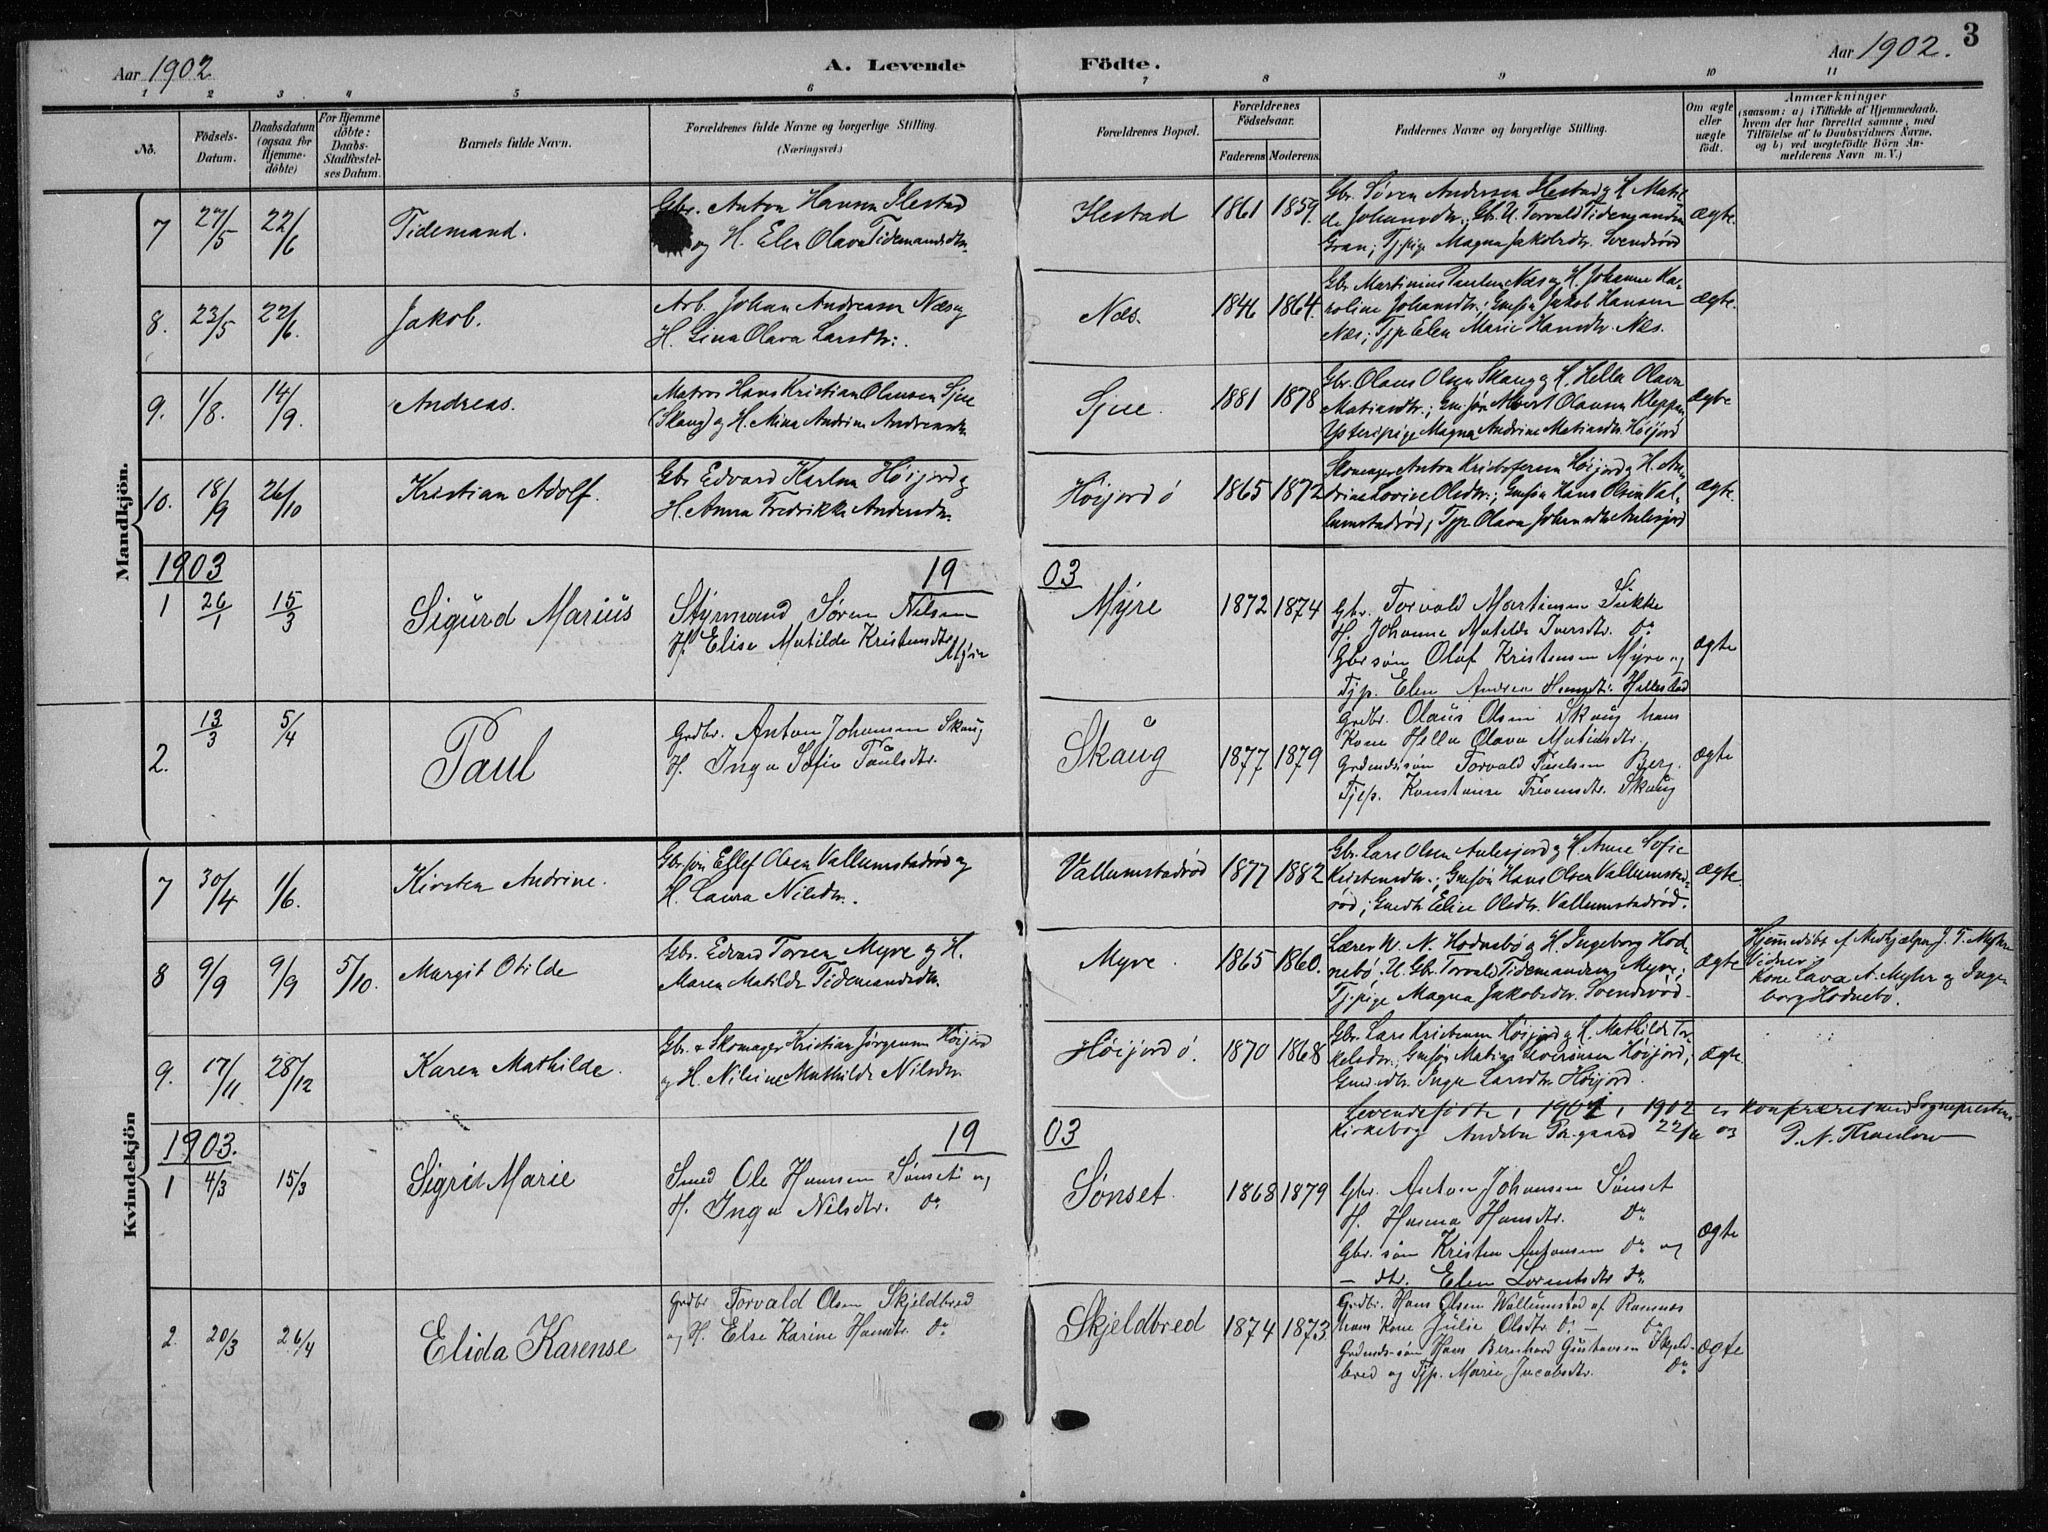 3
Aar 1902
A. Levende
Födte.
Aar 1902.
1 2 3 4 5 6 7 8 9 10 11
No.
Födsels-Datum.
Daabsdatum (ogsaa for Hjemme-döbte)
For Hjemme döbte: Daabs-Stadfæstel-ses Datum.
Barnets fulde Navn.
Forældrenes fulde Navne og borgerlige Stilling. (Næringsvei.)
Forældrenes Bopæl.
Forældrenes Födselsaar.
Faderens Moderens.
Faddernes Navne og borgerlige Stilling.
Om ægte eller uægte födt.
Anmærkninger
(saasom: a) i Tilfælde af Hjemmedaab, hvem der har forrettet samme, med Tilföielse af to Daabsvidners Navne, og b) ved uægtefödte Börn An-melderens Navn m. V.)
Mandkjön.
7 27/5 22/6 Tidemand. Gbr. Anton Hansen Hestad
og H. Elen Olava Tidemandsdtr.
Hestad 1861 1859. Gbr. Søren Andersen Hestad og H. Matil-
de Johansdtr.; Gbr. U. Torvald Tidemandsen
Gran; Tj.pige Magna Jakobsdtr. Svendsrød
ægte.
8. 23/5 22/6. Jakob. Arb. Johan Andreasen Næs og
H. Gina Olava Larsdtr.
Næs. 1846 1864. Gbr Martinius Paulsen Næs og H. Johanne Ka-
roline Johansdtr.; Gmsøn Jakob Hansen
Næs; Tjp Elen Marie Hansdtr. Næs.
ægte.
9. 1/8. 14/9. Andreas. Matros Hans Kristian Olausen Sjue
(Skaug) og H. Mina Andrine Andreasdtr
Sjue. 1881 1878 Gbr. Olaus Olsen Skaug og H. Hella Olava
Matiasdtr.; Gmsøn Albert Olausen Kleppan
Ysteripige Magna Andrine Matiasdtr. Høijord
ægte
10. 18/9 26/10 Kristian Adolf. Gbr Edvard Karlsen Høijord og
H. Anna Fredrikke Andersdtr.
Høijord ø 1865 1872 Skomager Anton Kristofersen Høijord og H. An-
drine Lovise Olsdtr.; Gmsøn Hans Olsen Val-
lumstadrød; Tjp Olava Johansdtr Aulesjord
ægte.
1903 19 03
1 26/1 15/3 Sigurd Marius Styrmand Søren Nilsen
H. Elise Matilde Kristensdtr. Myre
Myre 1872 1874 Gbr. Torvald Martinsen Sukke
H. Johanne Matilde Iversdtr. do
Gbr søn Olaf Kristensen Myre og
Tjp. Elen Andrea Hansdtr. Hillestad
ægte
2. 13/3 5/4 Paul Grdbr. Anton Johansen Skaug
H. Inga Sofie Paulsdtr.
Skaug 1877 1879 Grdbr. Olaus Olsen Skaug hans
Kone Hella Olava Matiasdtr.
Grdmdssøn Torvald Paulsen Berg.
Tjp. Konstanse Treomsdtr. Skaug
ægte
Kvindekjön
7 30/4 1/6. Kirsten Andrine. Gbr.søn Ellef Olsen Vallumstadrød og
H. Laura Nilsdtr.
Vallumstadrød 1877 1882 Gbr. Lars Olsen Aulesjord og H. Anne Sofie
Kristensdtr.; Gmsøn Hans Olsen Vallumstad-
rød; Gmdtr Elise Olsdtr. Vallumstadrød.
ægte.
8 9/9 9/9 5/10. Margit Otilde Gbr. Edvard Torsen Myre og H.
Maren Matilde Tidemandsdtr.
Myre. 1865 1860. Lærer N. N. Hodnebø og H. Ingeborg Hod-
nebø. U. Gbr. Torvald Tidemandsen Myre;
Tj.pige Magna Jakobsdtr. Svendsrød.
ægte Hjemmedöbt af Medhjælper J. T. Myhre
Vidner:
Kone Lava A. Myhre og Inge-
borg Hodnebø.
9. 17/11 28/12 Karen Mathilde. Gbr. & Skomager Kristian Jørgensen Høijord
og H. Nilsine Mathilde Nilsdtr.
Høijord ø. 1870 1868 Gbr. Lars Kristensen Høijord og H. Mathilde Tor-
kelsdtr.; Gmsøn Matias Severinsen Høijord;
Gmdtr. Inge Larsdtr. Høijord.
ægte.
Levendefødte i 1901, 1902 er konfereret med Sognepræstens
Kirkebog Andebu Prgaard 22/12 02 P. N. Thranlow
1903. 19 03
1 4/3 15/3 Sigrid Marie Smed Ole Hansen Sønset og
H. Inga Nilsdtr. do
Sønset. 1868 1879 Gbr. Anton Johansen Sønset
H. Hanna Hansdtr. do
Gbr. søn Kristen Antonsen do og
— dtr. Elen Lorentsdtr do
ægte
2. 20/3 26/4 Elida Karense Grdbr Torvald Olsen Skjeldbred
og H. Else Karine Hansdtr. do
Skjeldbred 1874 1873. Grdbr. Hans Olsen Wallumstad af Ramnæs
hans Kone Julie Olsdtr. do — do
Grdmds-søn Hans Bernhard Gustavsen Skjeld-
bred og Tjp. Marie Jacobsdtr. do
ægte